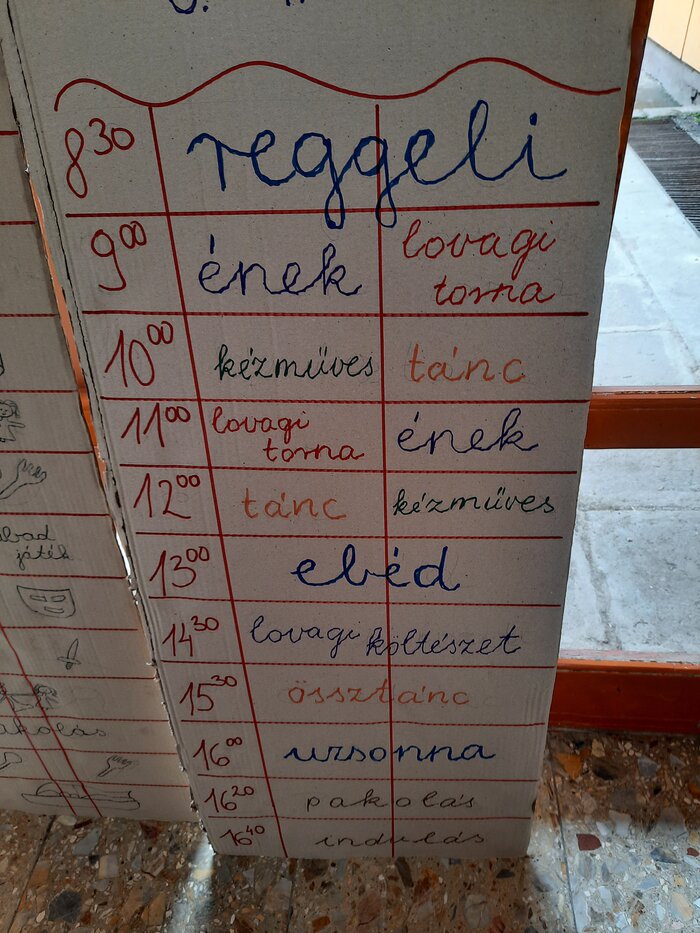 8³⁰ reggeli
9⁰⁰ ének lovagi
torna
10⁰⁰ kézműves tánc
11⁰⁰ lovagi ének
torna
12⁰⁰ tánc kézműves
13⁰⁰ ebéd
14³⁰ lovagi költészet
15³⁰ össztánc
16⁰⁰ uzsonna
16²⁰ pakolás
16⁴⁰ indulás
játék